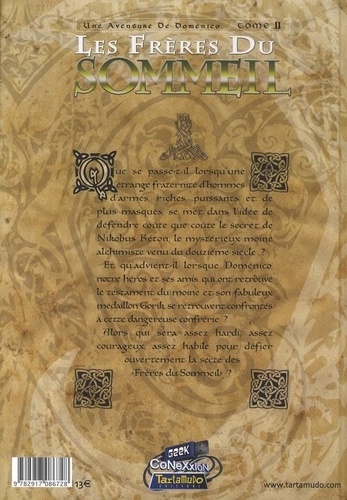 Une Aventure De Domenico TOME II
Les Frères Du
SOMMEIL
Que se passe-t-il lorsqu'une
étrange fraternité d'hommes
d'armes, riches, puissants et de
plus masqués, se met dans l'idée de
défendre coûte que coûte le secret de
Nikobus Kéton, le mystérieux moine
alchimiste venu du douzième siècle ?
Et qu'advient-il lorsque Domenico,
notre héros et ses amis qui ont retrouvé
le testament du moine et son fabuleux
medaillon Gorik, se retrouvent confrontés
à cette dangereuse confrérie ?
Alors qui sera assez hardi, assez
courageux, assez habile pour défier
ouvertement la secte des
«Frères du Sommeil» ?
GEEK
CoNeXxION
TartaMudo
EDITIONS
9 782917 086728
13€
www.tartamudo.com